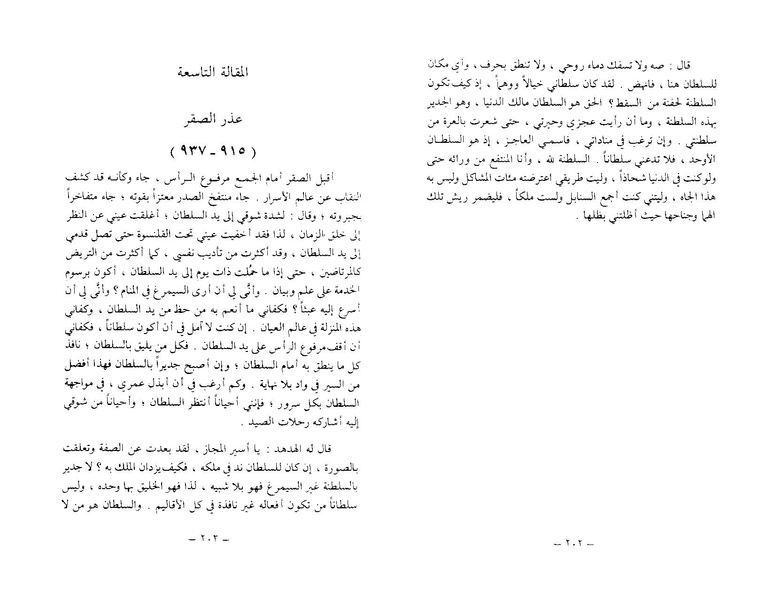 قال : صه ولا تسفك دماء روحي ، ولا تنطق بحرف ، وأي مكان
للسلطان هنا ، فانهض . لقد كان سلطاني خيالاً ووهماً ، إذ كيف تكون
السلطنة لحفنة من السقط ؟ الحق هو السلطان مالك الدنيا ، وهو الجدير
بهذه السلطنة ، وما أن رأيت عجزي وحيرتي ، حتى شعرت بالعرة من
سلطنتي . وإن ترغب في مناداتي ، فاسمي العاجز ، إذ هو السلطان
الأوحد ، فلا تدعني سلطاناً . السلطنة لله ، وأنا المنتفع من ورائه حتى
ولو كنت في الدنيا شحاذاً ، وليت طريقي اعترضته مئات المشاكل وليس به
هذا الجاه ، وليتني كنت أجمع السنابل ولست ملكاً ، فليضمر ريش تلك
الهما وجناحها حيث أظلتني بظلها .
— ٢٠٢ —
المقالة التاسعة
عذر الصقر
( ٩١٥ ـ ٩٣٧ )
أقبل الصقر أمام الجمع مرفوع الرأس ، جاء وكأنه قد كشف
النقاب عن عالم الأسرار . جاء منتفخ الصدر معتزاً بقوته ؛ جاء متفاخراً
بجبروته ؛ وقال : لشدة شوقي إلى يد السلطان ؛ أغلقت عيني عن النظر
إلى خلق الزمان ، لذا فقد أخفيت عيني تحت القلنسوة حتى تصل قدمي
إلى يد السلطان ، وقد أكثرت من تأديب نفسي ، كما أكثرت من التريض
كالمرتاضين ، حتى إذا ما حُملت ذات يوم إلى يد السلطان ، أكون برسوم
الخدمة على علم وبيان . وأنّى لي أن أرى السيمرغ في المنام ؟ وأنّى لي أن
أسرع إليه عبثاً ؟ فكفاني ما أنعم به من حظ من يد السلطان ، وكفاني
هذه المنزلة في عالم العيان . إن كنت لا آمل في أن أكون سلطاناً ، فكفاني
أن أقف مرفوع الرأس على يد السلطان . فكل من يليق بالسلطان ؛ نافذ
كل ما ينطق به أمام السلطان ؛ وإن أصبح جديراً بالسلطان فهذا أفضل
من السير في واد بلا نهاية . وكم أرغب في أن أبذل عمري ، في مواجهة
السلطان بكل سرور ؛ فإنني أحياناً أنتظر السلطان ؛ وأحياناً من شوقي
إليه أشاركه رحلات الصيد .
قال له الهدهد : يا أسير المجاز ، لقد بعدت عن الصفة وتعلقت
بالصورة ، إن كان للسلطان ند في ملكه ، فكيف يزدان الملك به ؟ لا جدير
بالسلطنة غير السيمرغ فهو بلا شبيه ، لذا فهو الخليق بها وحده ، وليس
سلطاناً من تكون أفعاله غير نافذة في كل الأقاليم . والسلطان هو من لا
— ٢٠٣ —